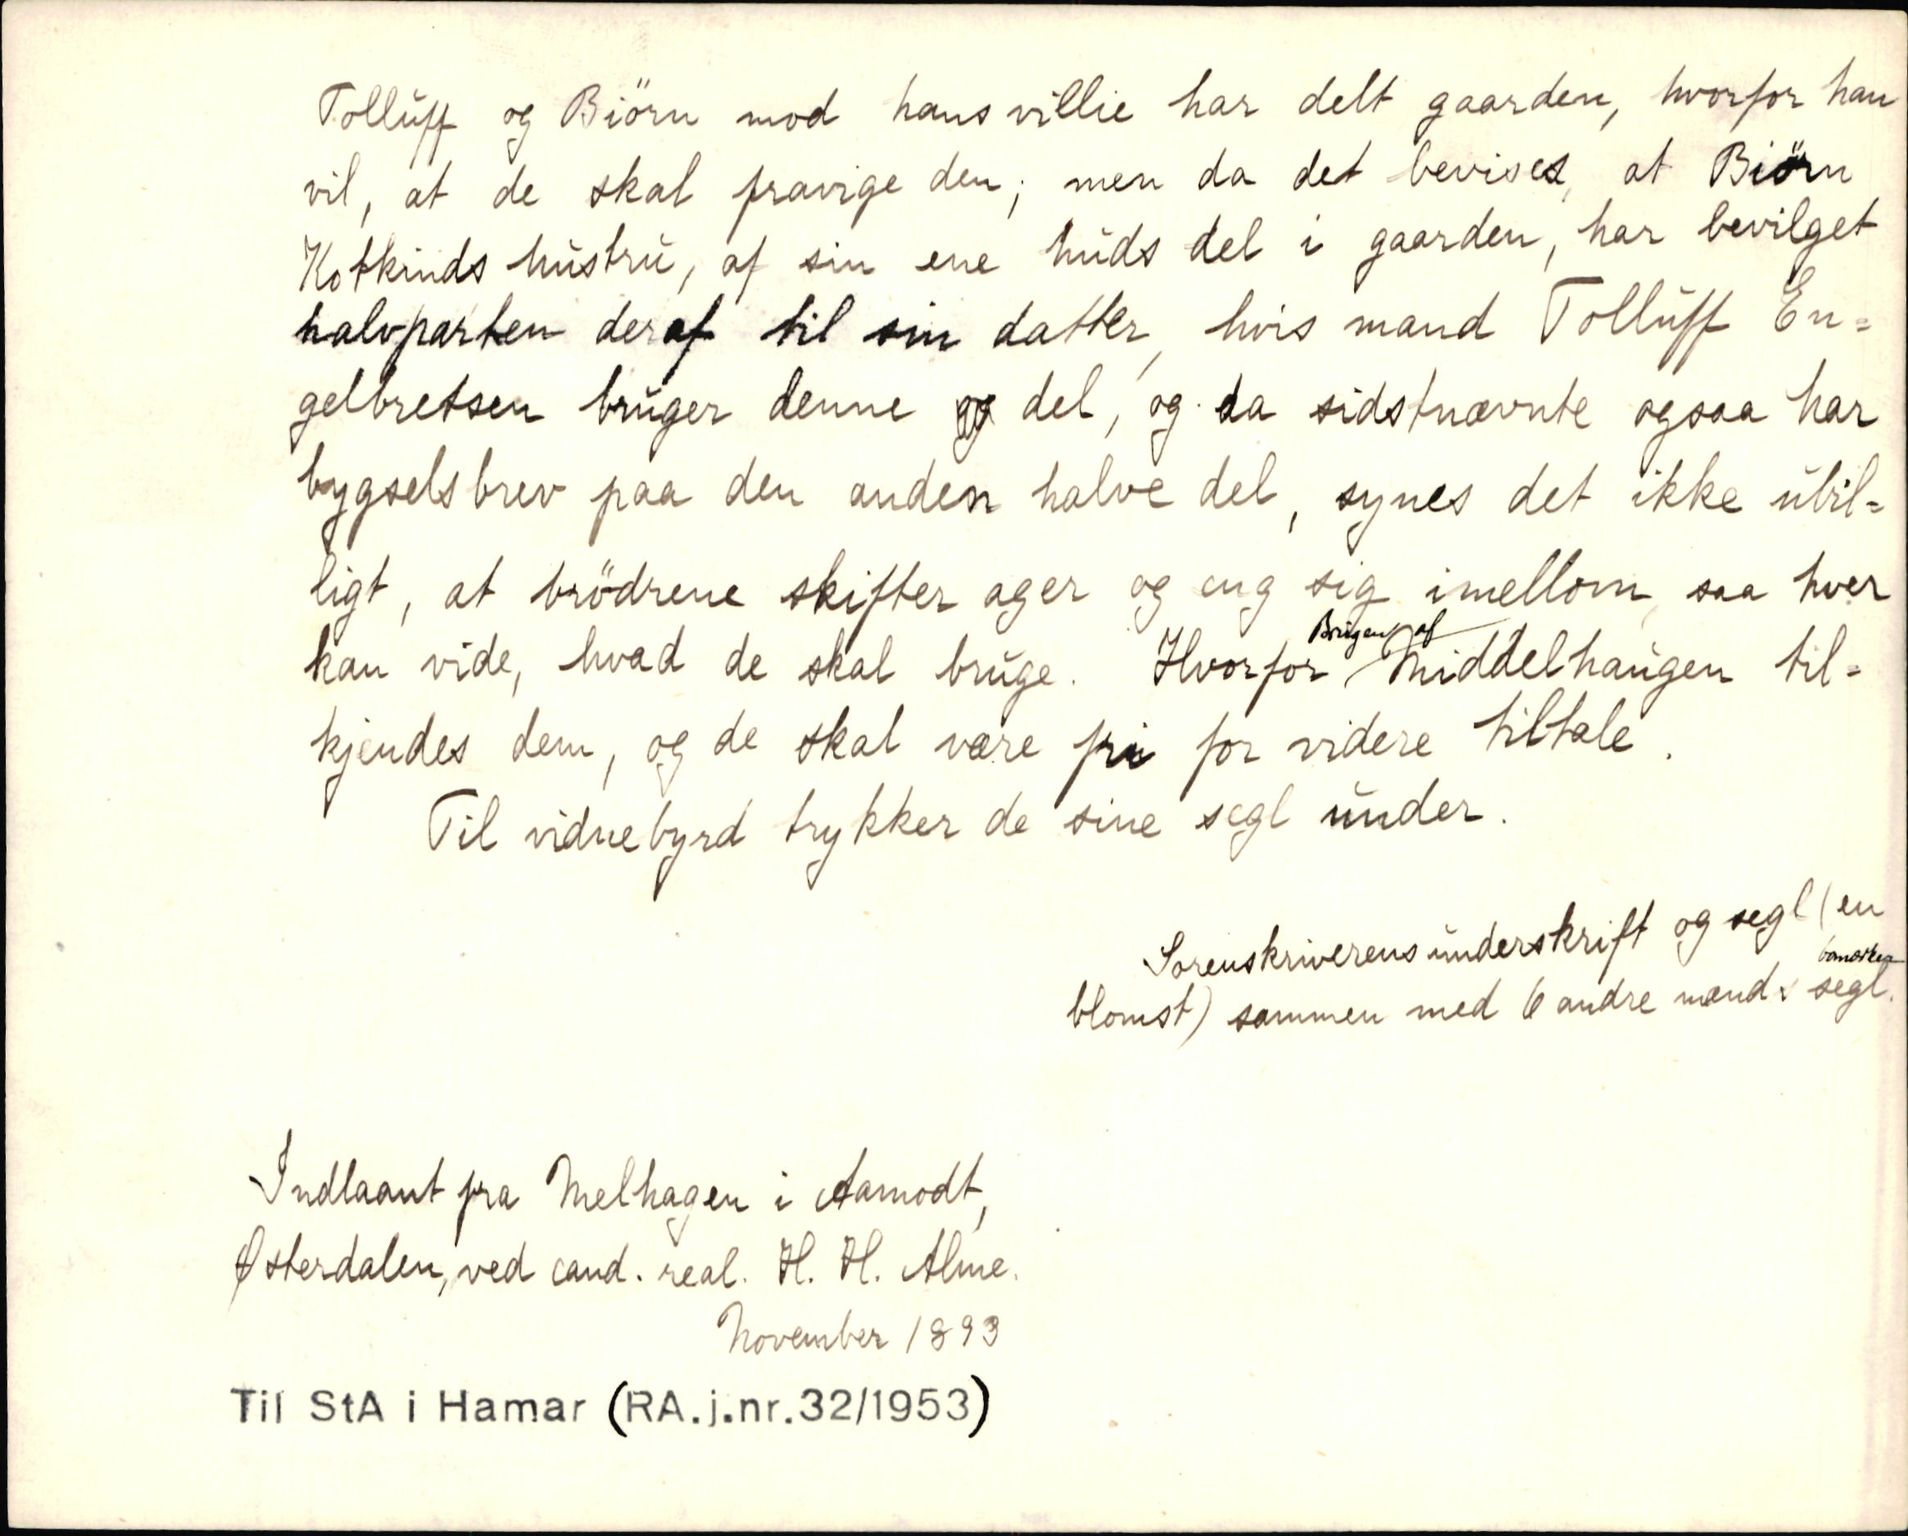 Tollŭff og Biörn mod hans villie har delt gaarden, hvorfor han
vil, at de skal fravige den; men da det bevises, at Biörn
Kotkinds hŭstrŭ, af sin ene hŭds del i gaarden, har bevilget
halvparten deraf til sin datter, hvis mand Tollŭff En=
gelbretsen brŭger denne del, og da sidstnævnte ogsaa har
bygselsbrev paa den anden halve del, synes det ikke ŭbil=
ligt, at brödrene skifter ager og eng sig imellom, saa hver
kan vide, hvad de skal brŭge. Hvorfor Brŭgen af Middelhaŭgen til=
kjendes dem, og de skal være fri for videre tiltale.
Til vidnebyrd trykker de sine segl ŭnder.
Sorenskriverens ŭnderskrift og segl (en
blomst) sammen med 6 andre mænds bomærker segl.
Indlaant fra Melhagen i Aamodt,
Østerdalen, ved cand. real. H. H. Alme.
November 1893
Til StA i Hamar (RA.j.nr.32/1953)